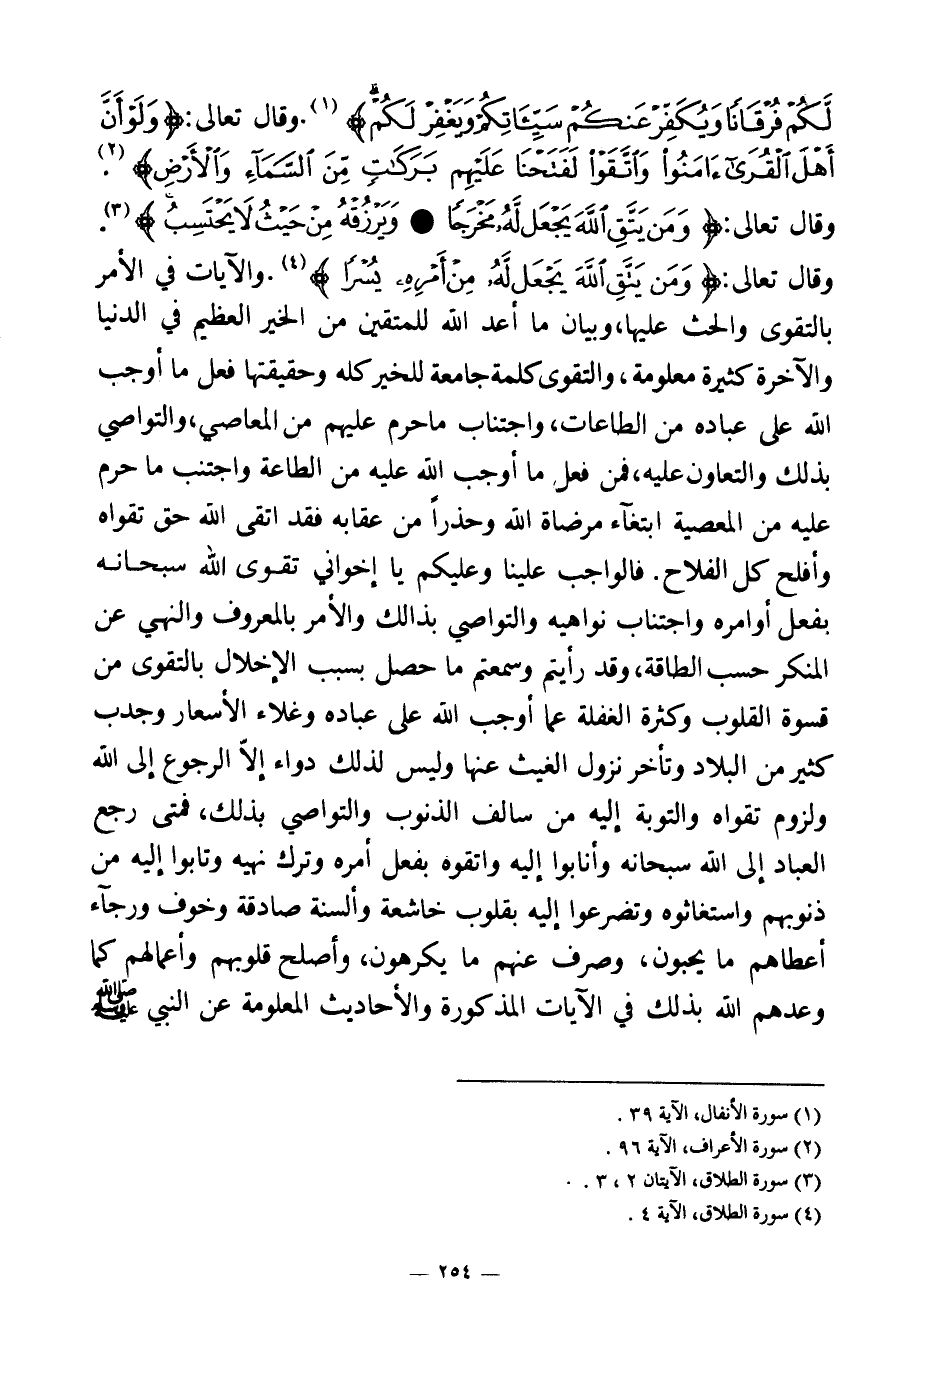 لَّكُمْ فُرْقَانًا وَيُكَفِّرْ عَنكُمْ سَيِّئَاتِكُمْ وَيَغْفِرْ لَكُمْ ﴾ (١) .وقال تعالى:﴿ وَلَوْ أَنَّ
أَهْلَ ٱلْقُرَىٰٓ ءَامَنُوا۟ وَٱتَّقَوْا۟ لَفَتَحْنَا عَلَيْهِم بَرَكَٰتٍ مِّنَ ٱلسَّمَآءِ وَٱلْأَرْضِ ﴾ (٢).
وقال تعالى:﴿ وَمَن يَتَّقِ ٱللَّهَ يَجْعَل لَّهُۥ مَخْرَجًا ● وَيَرْزُقْهُ مِنْ حَيْثُ لَا يَحْتَسِبُ ﴾ (٣).
وقال تعالى:﴿ وَمَن يَتَّقِ ٱللَّهَ يَجْعَل لَّهُۥ مِنْ أَمْرِهِۦ يُسْرًا ﴾ (٤) .والآيات في الأمر
بالتقوى والحث عليها،وبيان ما أعد الله للمتقين من الخير العظيم في الدنيا
والآخرة كثيرة معلومة ، والتقوى كلمة جامعة للخير كله وحقيقتها فعل ما أوجب
الله على عباده من الطاعات، واجتناب ماحرم عليهم من المعاصي،والتواصي
بذلك والتعاون عليه،فمن فعل ما أوجب الله عليه من الطاعة واجتنب ما حرم
عليه من المعصية ابتغآء مرضاة الله وحذراً من عقابه فقد اتقى الله حق تقواه
وأفلح كل الفلاح. فالواجب علينا وعليكم يا إخواني تقوى الله سبحانه
بفعل أوامره واجتناب نواهيه والتواصي بذالك والأمر بالمعروف والنهي عن
المنكر حسب الطاقة، وقد رأيتم وسمعتم ما حصل بسبب الإخلال بالتقوى من
قسوة القلوب وكثرة الغفلة عما أوجب الله على عباده وغلاء الأسعار وجدب
كثير من البلاد وتأخر نزول الغيث عنها وليس لذلك دواء إلاّ الرجوع إلى الله
ولزوم تقواه والتوبة إليه من سالف الذنوب والتواصي بذلك، فمتى رجع
العباد إلى الله سبحانه وأنابوا إليه واتقوه بفعل أمره وترك نهيه وتابوا إليه من
ذنوبهم واستغاثوه وتضرعوا إليه بقلوب خاشعة وألسنة صادقة وخوف ورجآء
أعطاهم ما يحبون، وصرف عنهم ما يكرهون، وأصلح قلوبهم وأعمالهم كما
وعدهم الله بذلك في الآيات المذكورة والأحاديث المعلومة عن النبي ﷺ
(١) سورة الأنفال، الآية ٣٩ .
(٢) سورة الأعراف، الآية ٩٦ .
(٣) سورة الطلاق، الآيتان ٢ ، ٣ .
(٤) سورة الطلاق، الآية ٤ .
— ٢٥٤ —